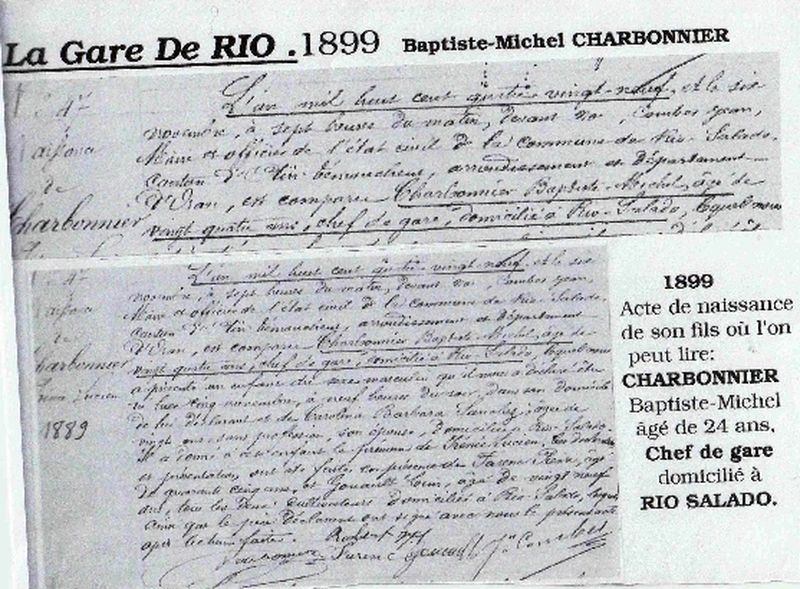 La Gare De RIO . 1899 Baptiste-Michel CHARBONNIER
L'an mil huit cent quatre vingt neuf et le six
novembre, à sept heures du matin, devant nous, Combes Jean,
Maire et officier de l'état civil de la commune de Rio-Salado,
canton d'Aïn Témouchent, arrondissement et département
d'Oran, est comparu Charbonnier Baptiste-Michel, âgé de
vingt quatre ans, chef de gare, domicilié à Rio-Salado, lequel nous
Naissance
de
Charbonnier
L'an mil huit cent quatre vingt neuf et le six
novembre, à sept heures du matin, devant nous, Combes Jean,
Maire et officier de l'état civil de la commune de Rio-Salado,
canton d'Aïn Témouchent, arrondissement et département
d'Oran, est comparu Charbonnier Baptiste-Michel, âgé de
vingt quatre ans, chef de gare, domicilié à Rio-Salado, lequel nous
a présenté un enfant du sexe masculin qu'il nous a déclaré être
né hier cinq novembre, à neuf heures du soir, dans son domicile
de lui déclarant et de Carolina Barbara âgée de
vingt ans sans profession, son épouse, domiciliés à Rio-Salado
et a donné à cet enfant les prénoms de Lucien, Ces déclaration
et présentation ont été faites en présence de âgé
de quarante cinq ans, et de vingt neuf
ans, tous les deux cultivateurs domiciliés à Rio-Salado, lesquels
ainsi que le père déclarant ont signé avec nous le présent acte
après lecture faite.
Charbonnier Jn Combes
Naissance
de
Charbonnier
Lucien
1889
1899
Acte de naissance
de son fils où l'on
peut lire:
CHARBONNIER
Baptiste-Michel
âgé de 24 ans,
Chef de gare
domicilié à
RIO SALADO.